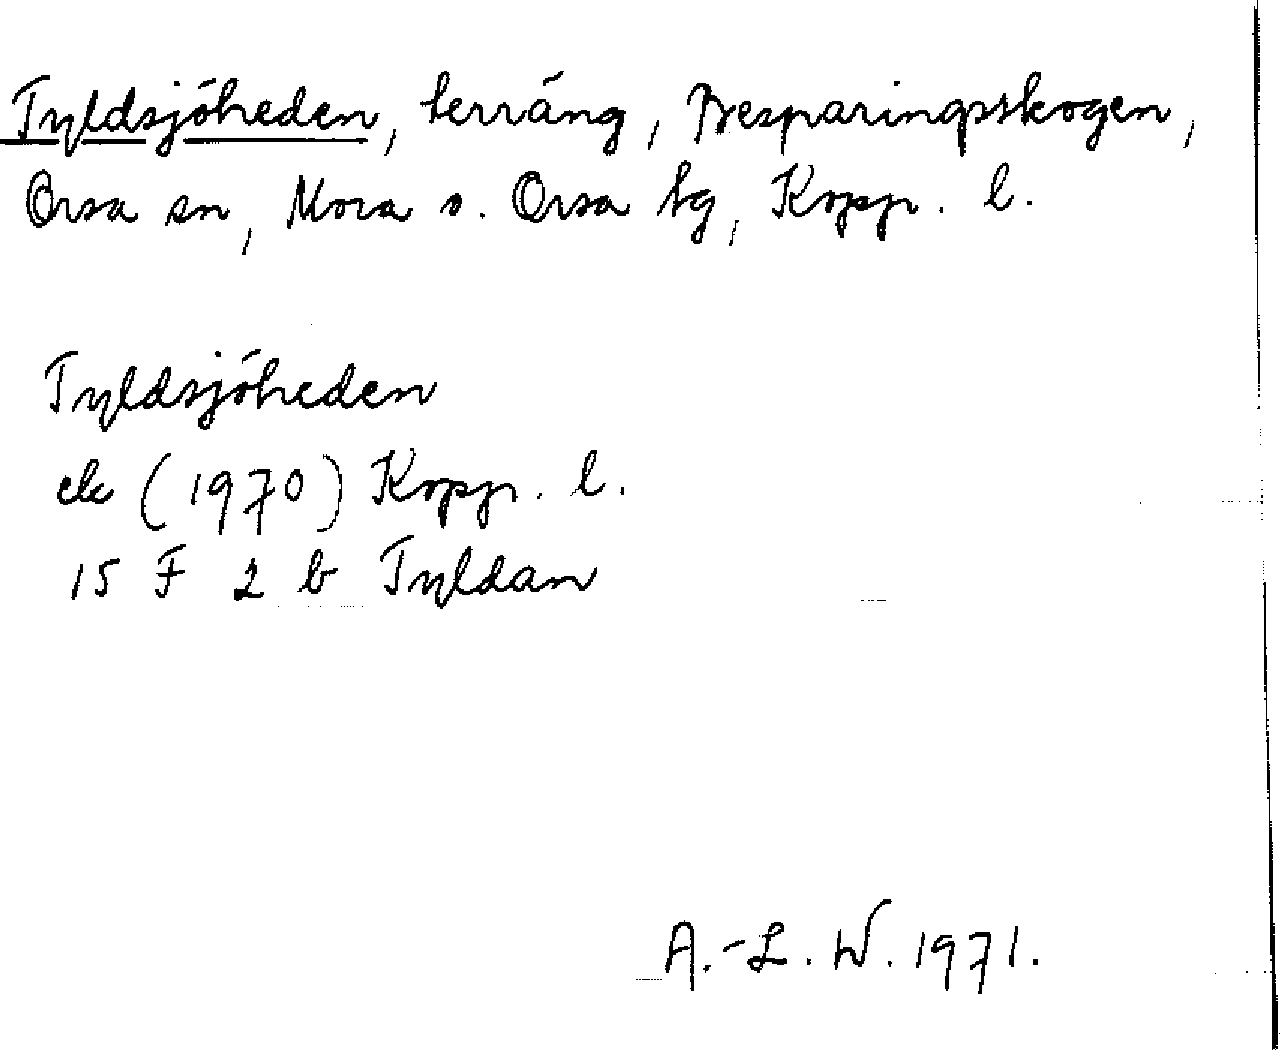 Tyldsjöheden, terräng, Besparingsskogen,
Orsa sn, Mora o. Orsa tg, Kopp. l.
Tyldsjöheden
ek (1970) Kopp. l.
15 F 2 b Tyldan
A.-L. W. 1971.